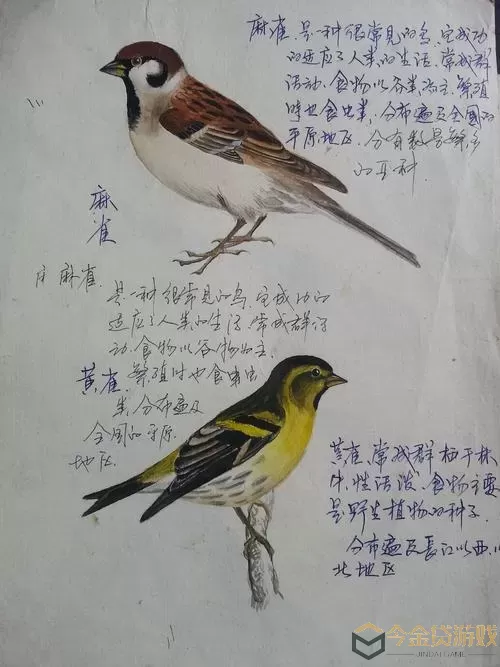 麻雀,是一种很常见的鸟,它成功
的适应了人类的生活,常成群
活动,食物以谷类为主,繁殖
时也食虫类,分布遍及全国的
平原地区,分有数量繁多
的亚种.
麻
雀
麻雀.
是一种很常见的鸟,它成功的
适应了人类的生活,常成群活
动,食物以谷物为主,
黄雀
繁殖时也食昆虫
类,分布遍及
全国的平原
地区.
黄雀,常成群栖于林
中,性活泼,食物主要
是野生植物的种子.
分布遍及長江以西,以
北地区
今金贷游戏
JINDAIGAME